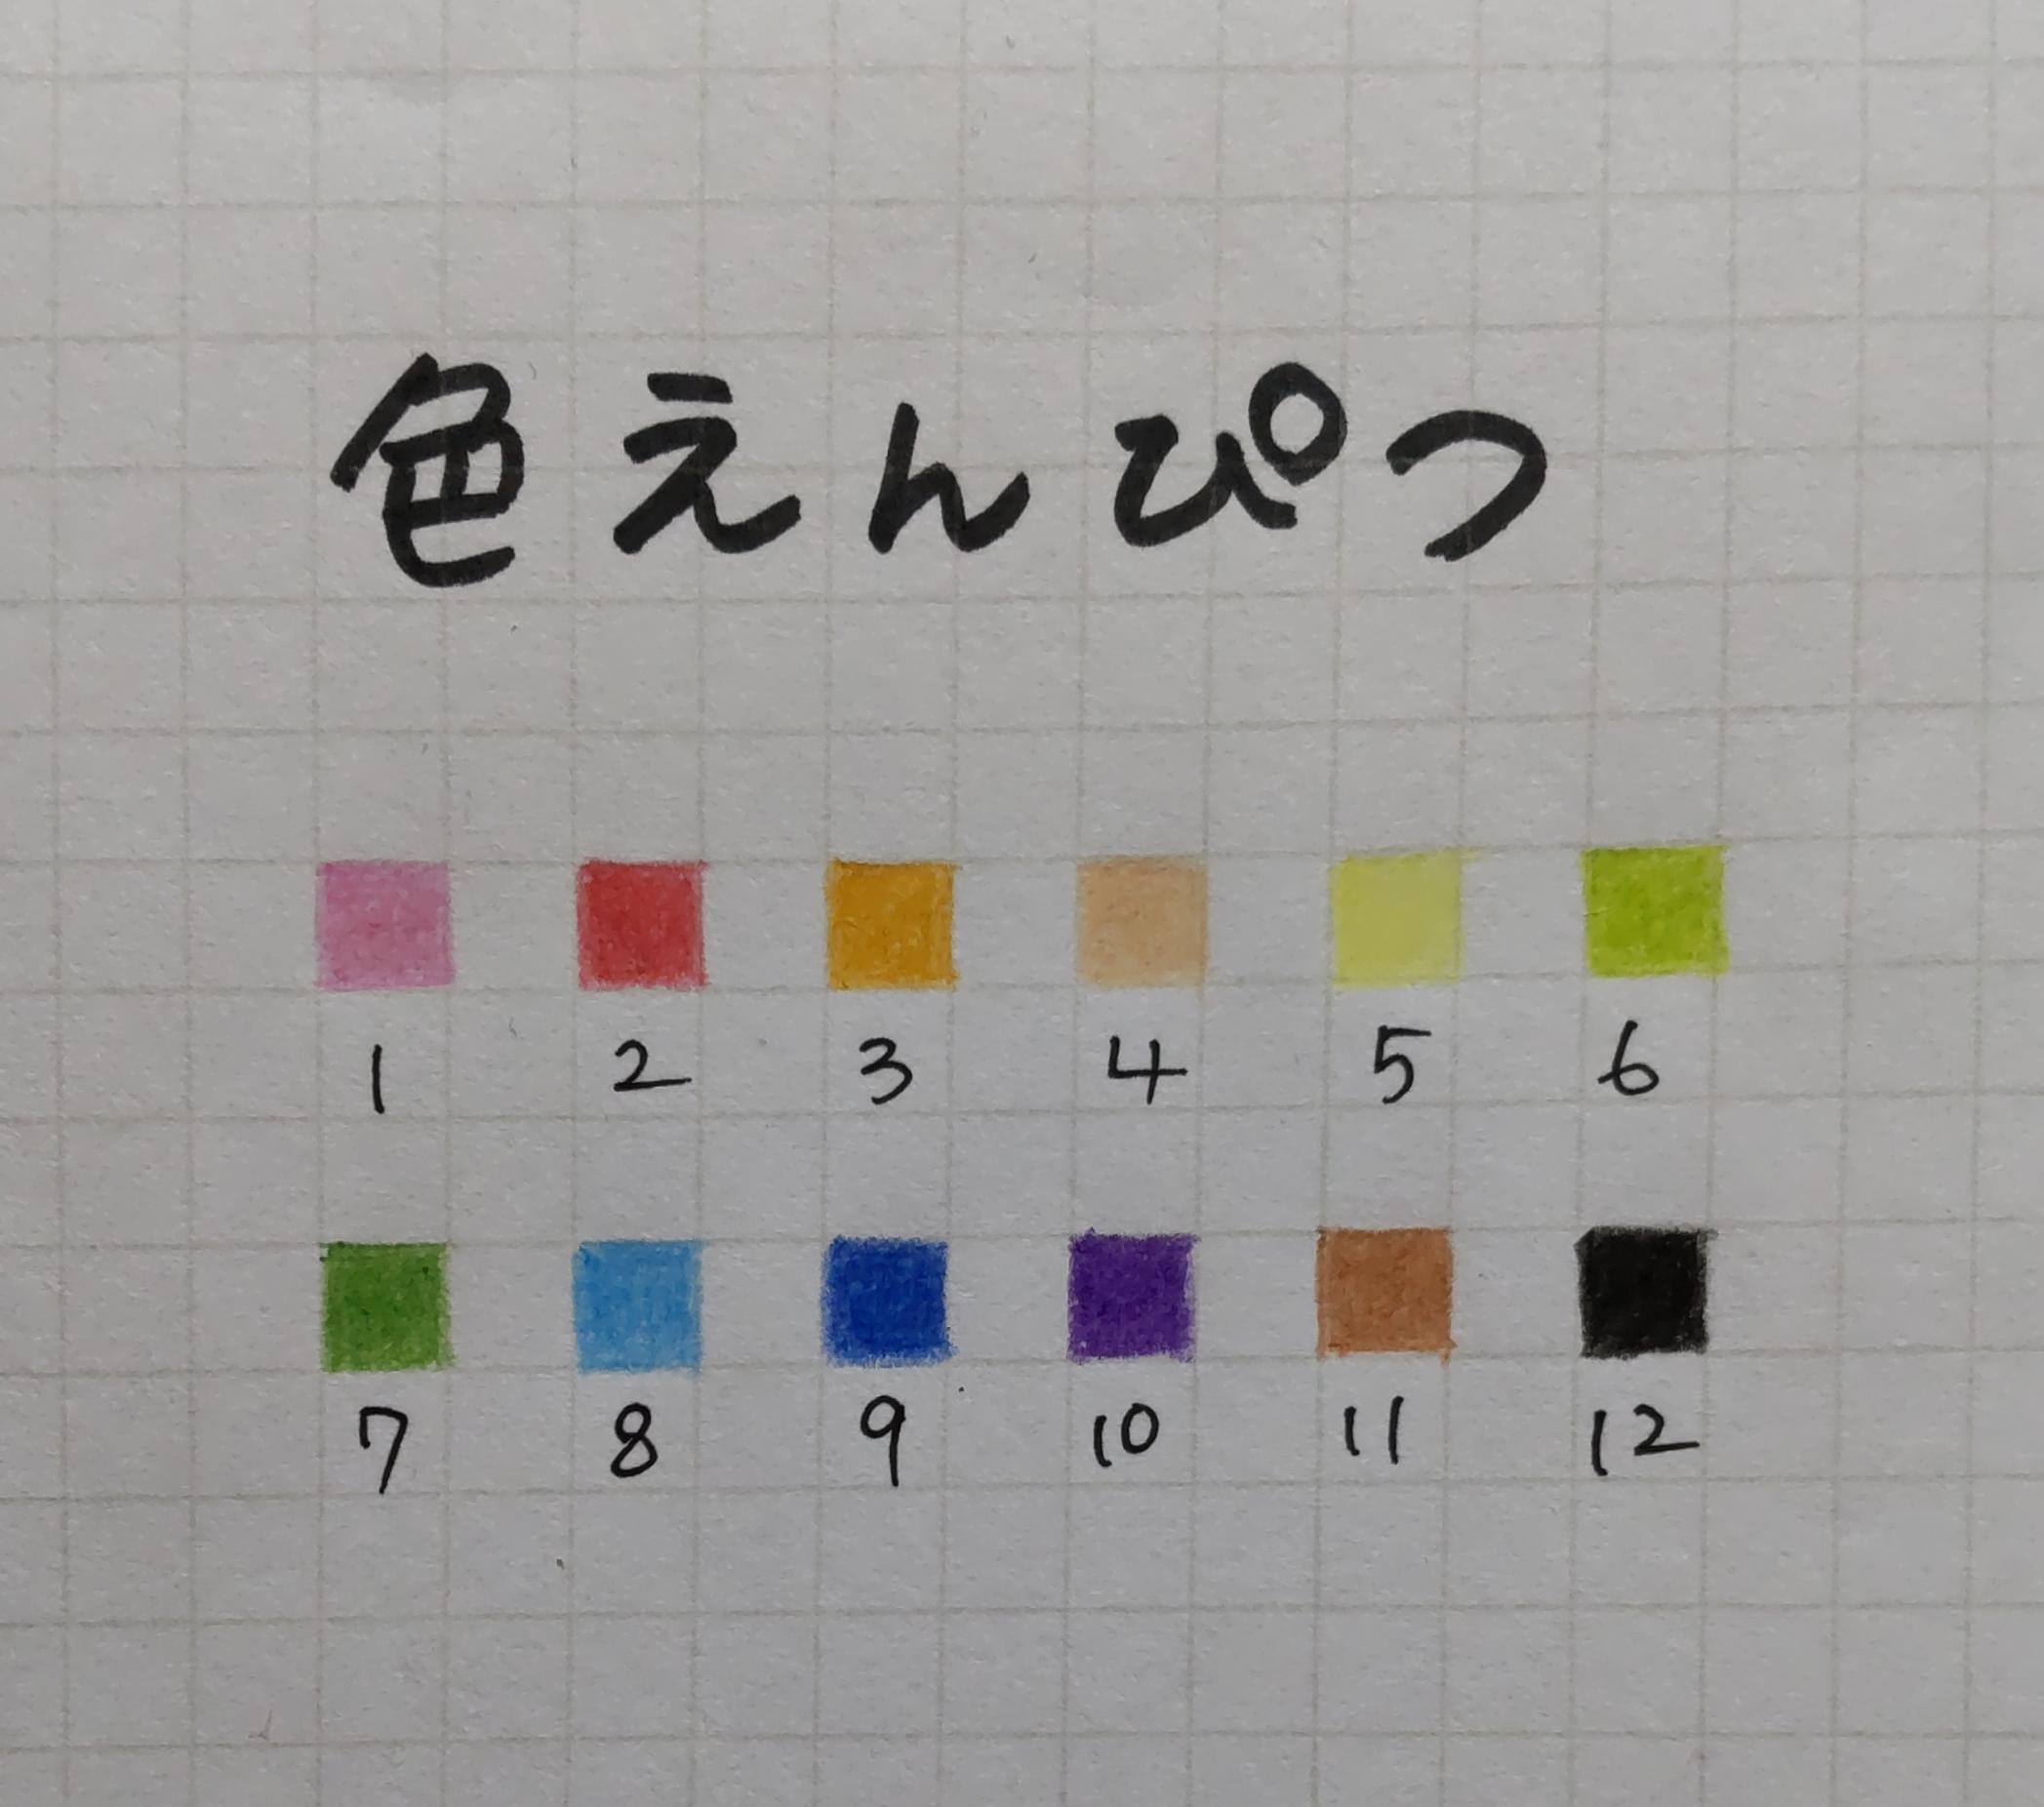 色えんぴつ
1 2 3 4 5 6
7 8 9 10 11 12